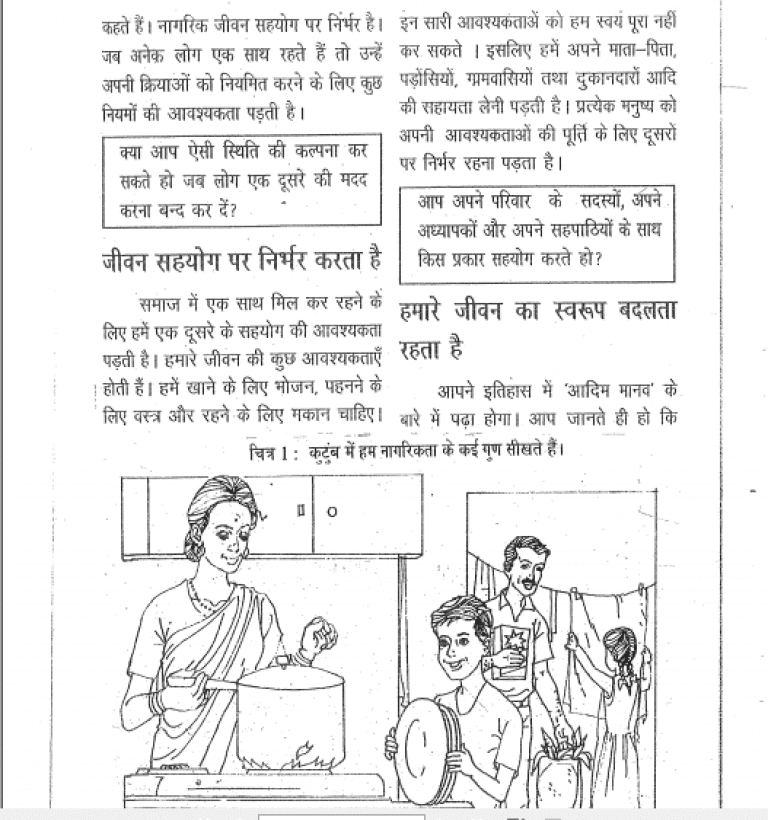 कहते हैं। नागरिक जीवन सहयोग पर निर्भर है।
जब अनेक लोग एक साथ रहते हैं तो उन्हें
अपनी क्रियाओं को नियमित करने के लिए कुछ
नियमों की आवश्यकता पड़ती है।
क्या आप ऐसी स्थिति की कल्पना कर
सकते हो जब लोग एक दूसरे की मदद
करना बन्द कर दें?
जीवन सहयोग पर निर्भर करता है
समाज में एक साथ मिल कर रहने के
लिए हमें एक दूसरे के सहयोग की आवश्यकता
पड़ती है। हमारे जीवन की कुछ आवश्यकताएँ
होती हैं। हमें खाने के लिए भोजन, पहनने के
लिए वस्त्र और रहने के लिए मकान चाहिए।
इन सारी आवश्यकताओं को हम स्वयं पूरा नहीं
कर सकते । इसलिए हमें अपने माता-पिता,
पड़ोसियों, ग्रमवासियों तथा दुकानदारों आदि
की सहायता लेनी पड़ती है। प्रत्येक मनुष्य को
अपनी आवश्यकताओं की पूर्ति के लिए दूसरों
पर निर्भर रहना पड़ता है।
आप अपने परिवार के सदस्यों, अपने
अध्यापकों और अपने सहपाठियों के साथ
किस प्रकार सहयोग करते हो?
हमारे जीवन का स्वरूप बदलता
रहता है
आपने इतिहास में ‘आदिम मानव’ के
बारे में पढ़ा होगा। आप जानते ही हो कि
चित्र 1 : कुटुंब में हम नागरिकता के कई गुण सीखते हैं।